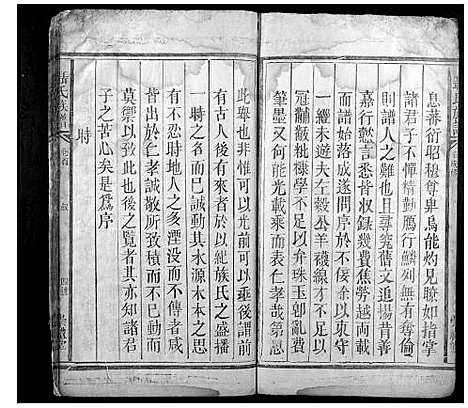 息蕃衍昭穆尊卑烏能灼見瞭如指掌
諸君子不憚精勤鴈行鱗列無有奪倫
則譜人之難也且尋舊文追揚昔善
嘉行懿言悉昔收録幾費焦勞越兩載
而譜始落成遂問序於不佞予以東守
一經未遊夫左穀公羊襪線才不足以
冠黼黻粃糠學不足以弁珠玉卽亂費
筆墨又何能光載乘而表仁孝哉第思
此舉也非惟可以光前亦可以垂後謂前
有古人後有來者於以紀族氏之盛播
一時之名而巳誠動其水源木本之思
有不忍時地人之多湮没而不傳者咸
皆出於仁孝誠敬所致積而不巳動而
莫禦以此也後之覽者其亦知諸君
子之苦心矣是爲序
時
氏族譜
叙